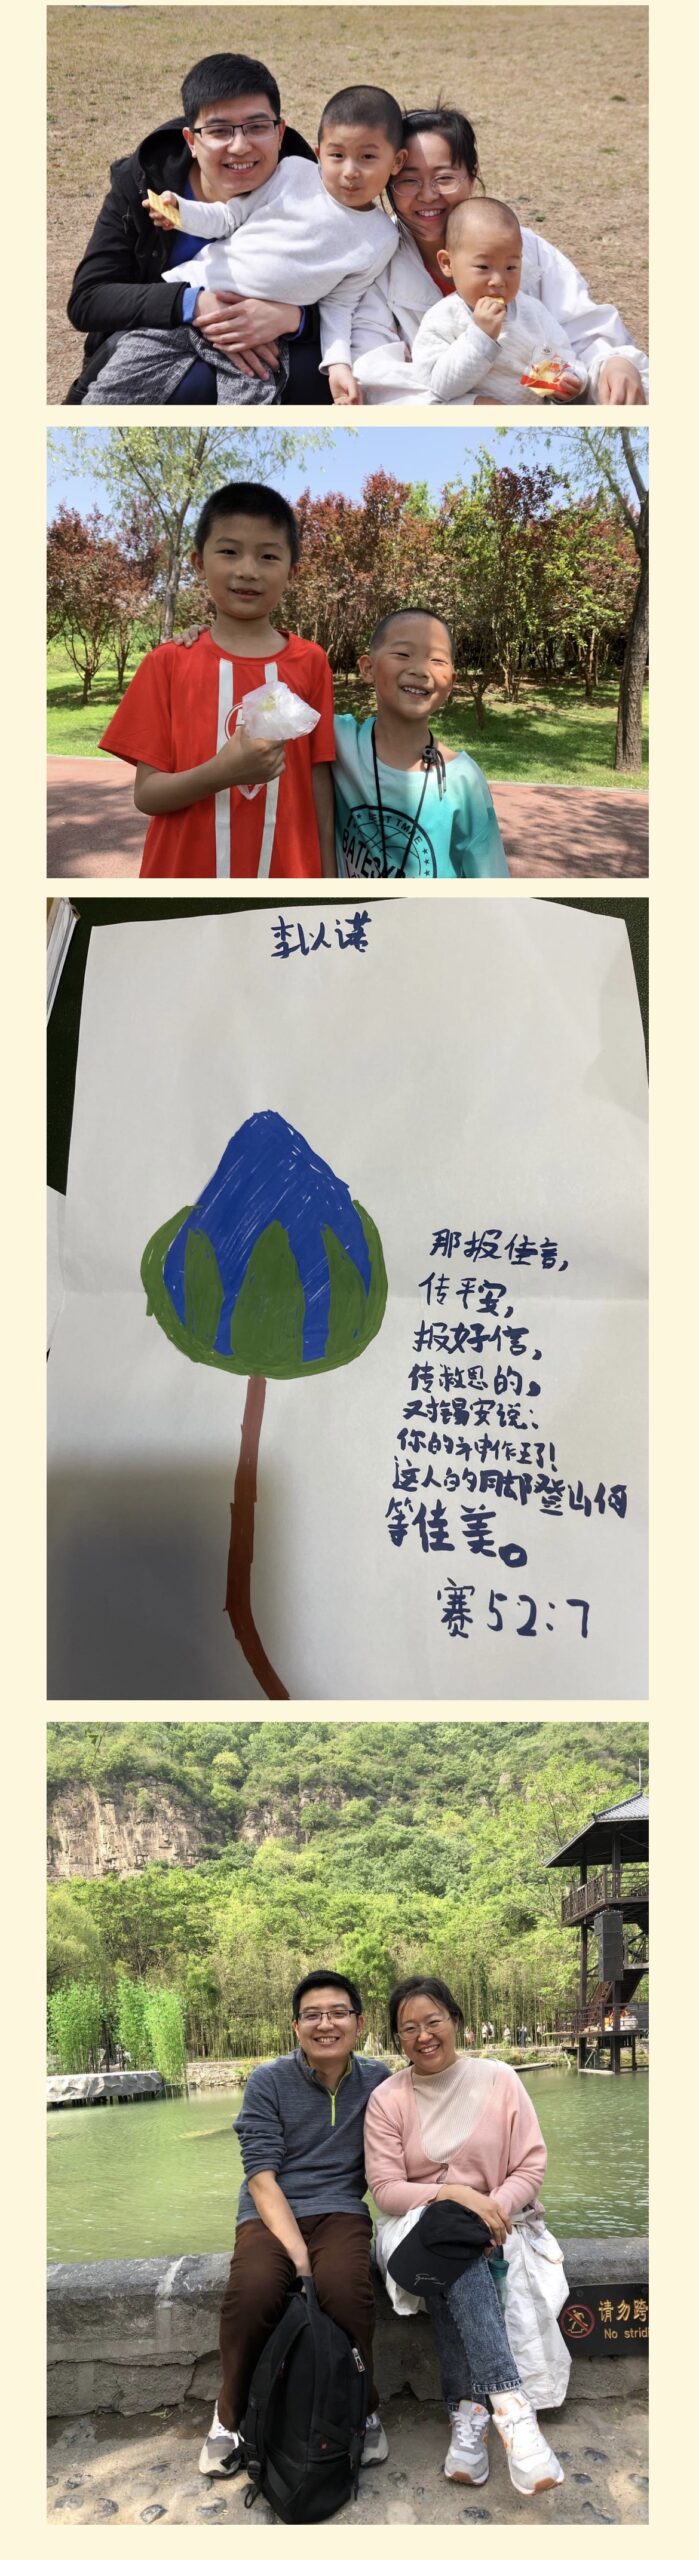 BATESY
李以诺
那报佳音，
传平安，
报好信，
传救恩的，
对锡安说：
你的神作王了！
这人的脚登山何
等佳美。
赛52:7
请勿跨
No strid